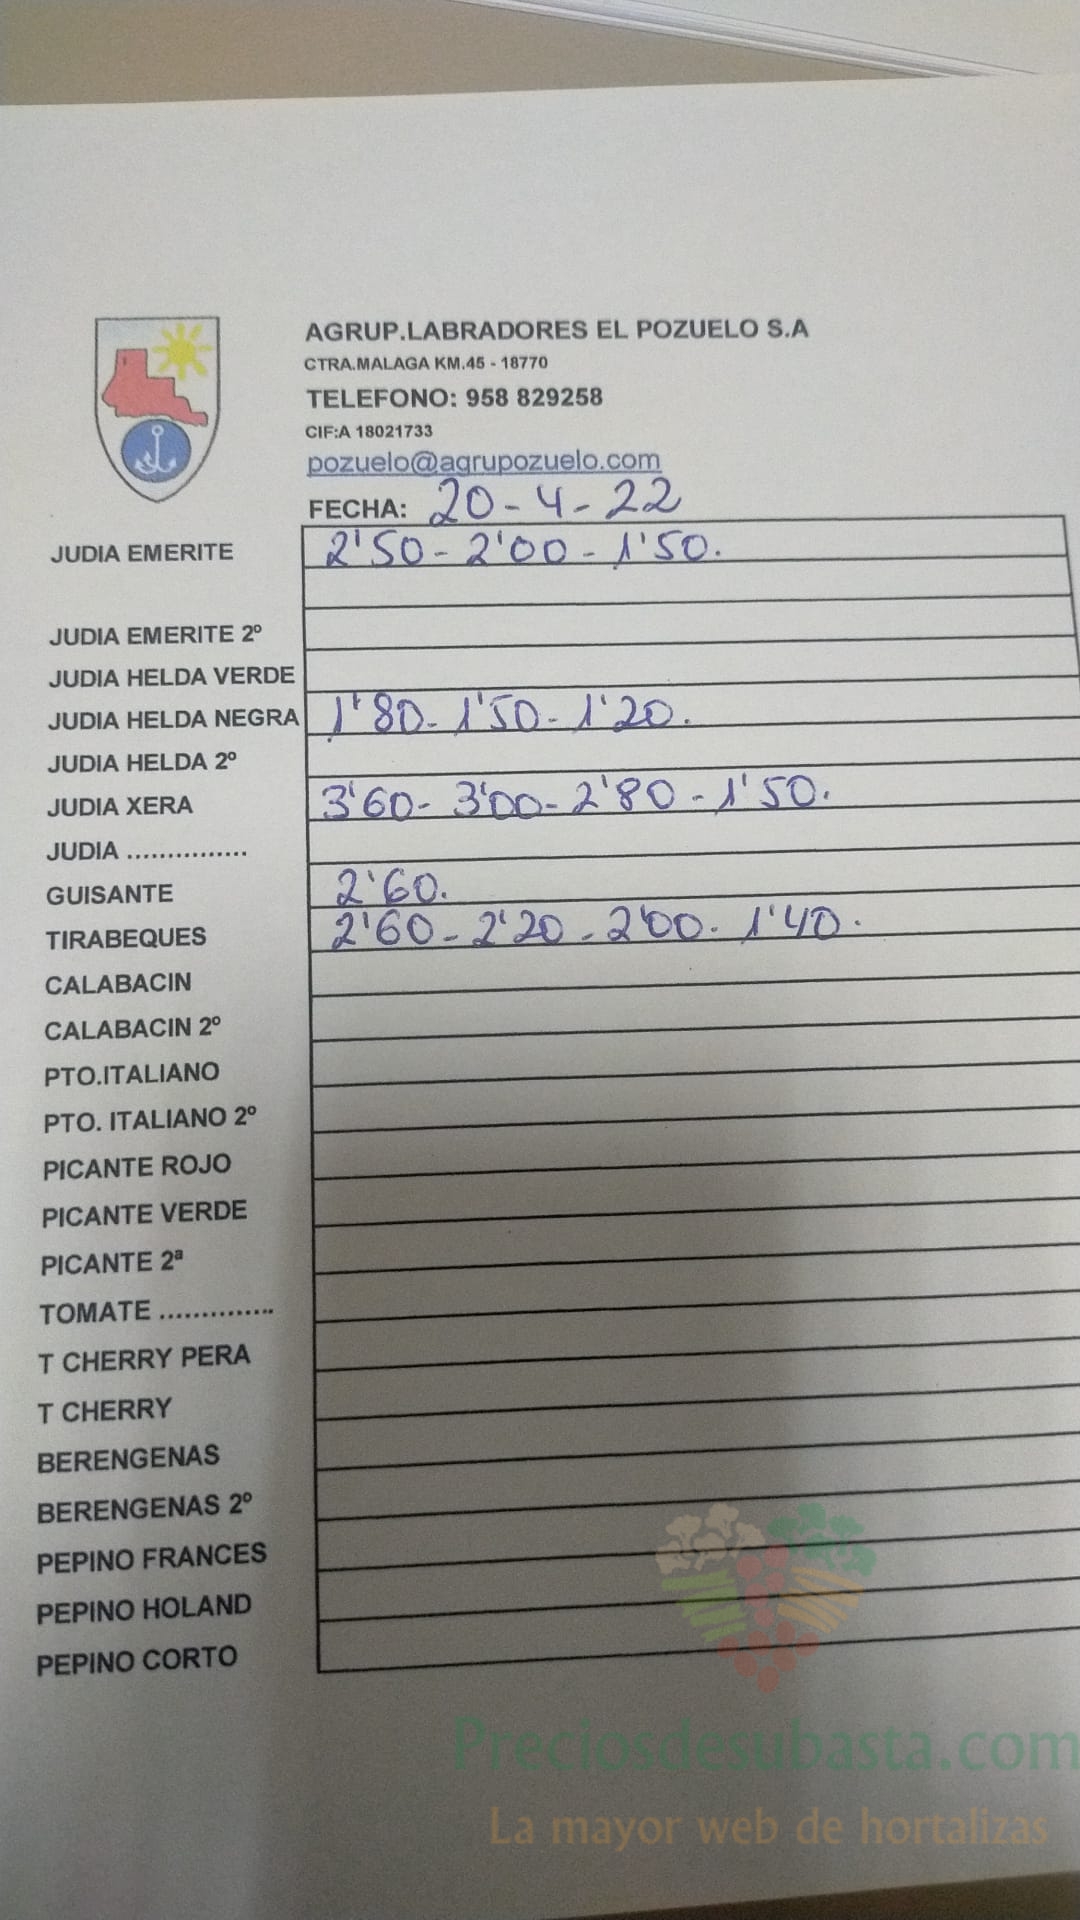 AGRUP.LABRADORES EL POZUELO S.A
CTRA.MALAGA KM.45 - 18770
TELEFONO: 958 829258
CIF:A 18021733
pozuelo@agrupozuelo.com
FECHA: 20-4-22
JUDIA EMERITE 2'50-2'00-1'50.
JUDIA EMERITE 2º
JUDIA HELDA VERDE
JUDIA HELDA NEGRA 1'80-1'50-1'20.
JUDIA HELDA 2º
JUDIA XERA 3'60-3'00-2'80-1'50.
JUDIA ...............
GUISANTE 2'60.
TIRABEQUES 2'60-2'20-2'00-1'40.
CALABACIN
CALABACIN 2º
PTO.ITALIANO
PTO. ITALIANO 2º
PICANTE ROJO
PICANTE VERDE
PICANTE 2ª
TOMATE ..............
T CHERRY PERA
T CHERRY
BERENGENAS
BERENGENAS 2º
PEPINO FRANCES
PEPINO HOLAND
PEPINO CORTO
Preciosdesubasta.com
La mayor web de hortalizas